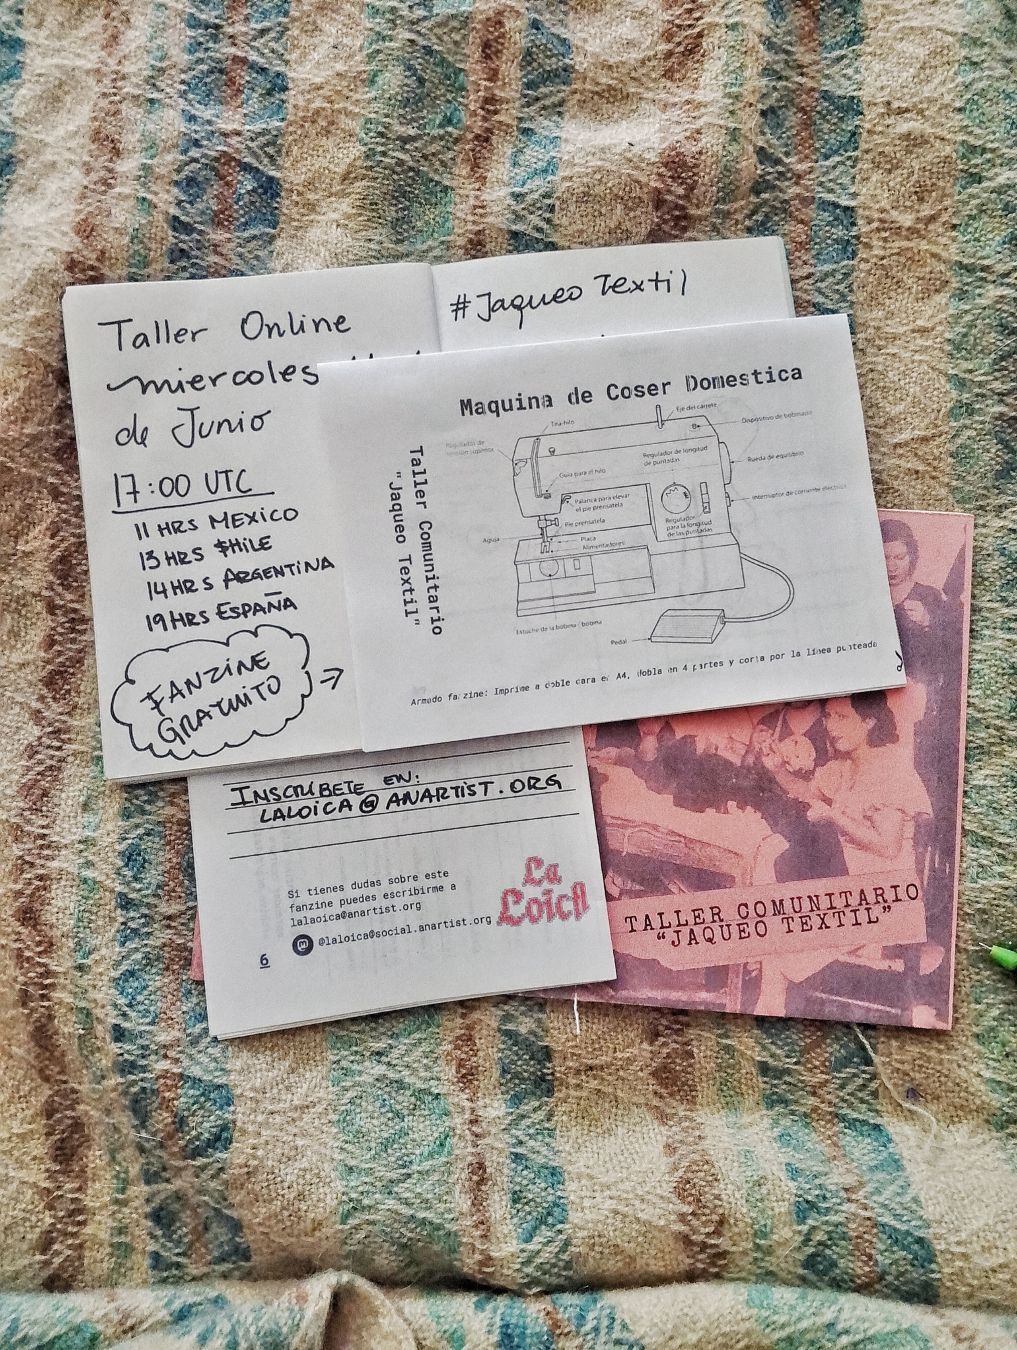 Taller Online
miercoles
de Junio
17:00 UTC
11 HRS MEXICO
13 HRS $HiLE
14 HRS ARGENTiNA
19 HRS ESPAÑA
FANZINE
GRATUITO
#Jaqueo Textil
Maquina de Coser Domestica
Taller Comunitario
"Jaqueo Textil"
Tira-hilo
Eje del carrete
Dispositivo de bobinado
Regulador de
tensión superior
Regulador de longitud
de puntadas
Rueda de equilibrio
Guía para el hilo
Palanca para elevar
el pie prensatela
Interruptor de corriente eléctrica
Pie prensatela
Regulador
para la longitud
de las puntadas
Aguja
Placa
Alimentadores
Estuche de la bobina / bobina
Pedal
Armado fanzine: Imprime a doble cara en A4, dobla en 4 partes y corta por la línea punteada
INSCRÍBETE EN:
LALOiCA@ANARTiST.ORG
Si tienes dudas sobre este
fanzine puedes escribirme a
lalaoica@anartist.org
@laloica@social.anartist.org
6
La
Loica
TALLER COMUNITARIO
"JAQUEO TEXTIL"